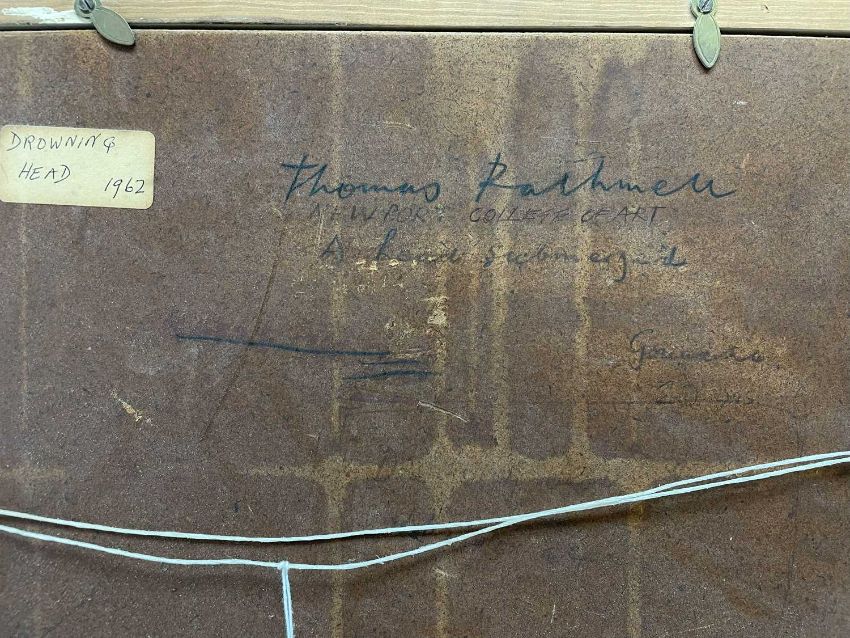 DROWNING
HEAD 1962
Thomas Rathmell
NEWPORT COLLEGE OF ART
A head submerged
Gouache